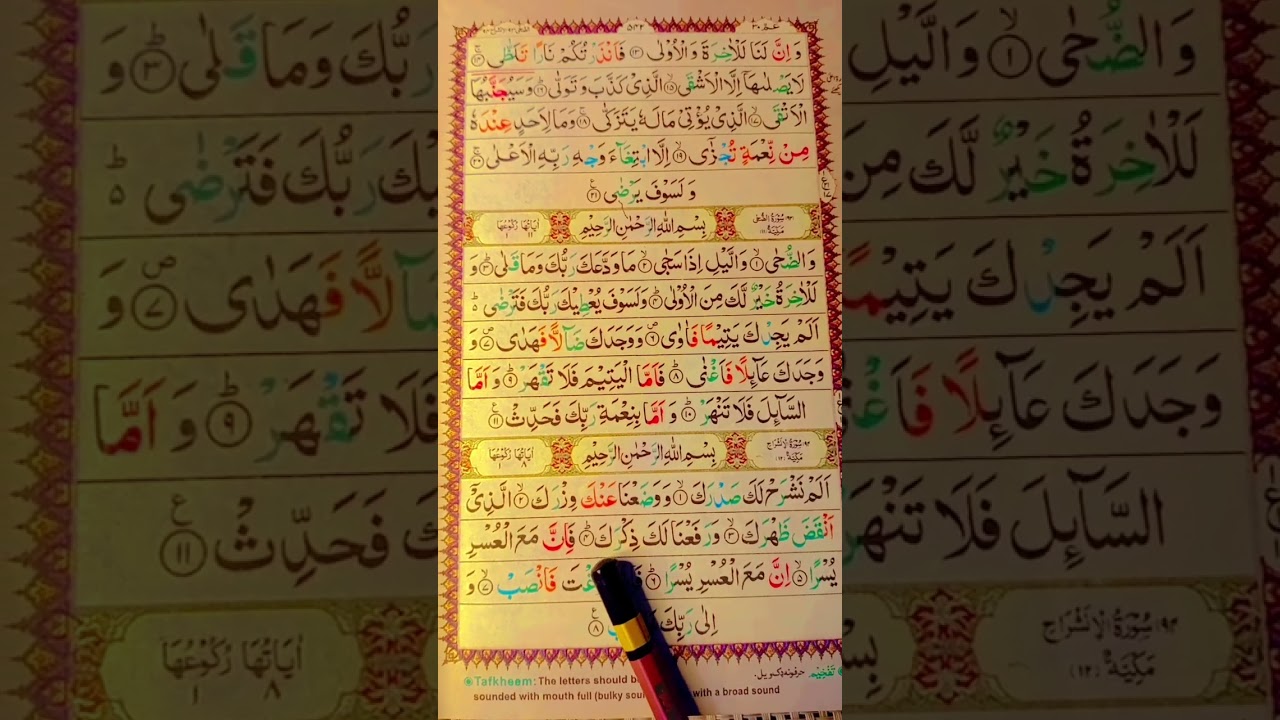 وَاِنَّ لَنَا لَلْاٰخِرَةَ وَالْاُوْلٰى ۝۱۳ فَاَنْذَرْتُكُمْ نَارًا تَلَظّٰى ۝۱۴
لَا يَصْلٰىهَاۤ اِلَّا الْاَشْقَى ۝۱۵ الَّذِىْ كَذَّبَ وَتَوَلّٰى ۝۱۶ وَسَيُجَنَّبُهَا
الْاَتْقَى ۝۱۷ الَّذِىْ يُؤْتِىْ مَالَهٗ يَتَزَكّٰى ۝۱۸ وَمَا لِاَحَدٍ عِنْدَهٗ
مِنْ نِّعْمَةٍ تُجْزٰٓى ۝۱۹ اِلَّا ابْتِغَآءَ وَجْهِ رَبِّهِ الْاَعْلٰى ۝۲۰
وَلَسَوْفَ يَرْضٰى ۝۲۱
سُوْرَةُ الضُّحٰى مَكِّيَّةٌ (۱۱) بِسْمِ اللّٰهِ الرَّحْمٰنِ الرَّحِيْمِ اٰيَاتُهَا ۱۱ رُكُوْعُهَا ۱
وَالضُّحٰى ۝۱ وَالَّيْلِ اِذَا سَجٰى ۝۲ مَا وَدَّعَكَ رَبُّكَ وَمَا قَلٰى ۝۳ وَ
لَلْاٰخِرَةُ خَيْرٌ لَّكَ مِنَ الْاُوْلٰى ۝۴ وَلَسَوْفَ يُعْطِيْكَ رَبُّكَ فَتَرْضٰى ۵
اَلَمْ يَجِدْكَ يَتِيْمًا فَاٰوٰى ۝۶ وَوَجَدَكَ ضَآلًّا فَهَدٰى ۝۷ وَ
وَجَدَكَ عَآئِلًا فَاَغْنٰى ۝۸ فَاَمَّا الْيَتِيْمَ فَلَا تَقْهَرْ ۝۹ وَاَمَّا
السَّآئِلَ فَلَا تَنْهَرْ ۝۱۰ وَاَمَّا بِنِعْمَةِ رَبِّكَ فَحَدِّثْ ۝۱۱
۹۴ سُوْرَةُ الْاِنْشِرَاحِ مَكِّيَّةٌ (۱۲) بِسْمِ اللّٰهِ الرَّحْمٰنِ الرَّحِيْمِ اٰيَاتُهَا ۸ رُكُوْعُهَا ۱
اَلَمْ نَشْرَحْ لَكَ صَدْرَكَ ۝۱ وَوَضَعْنَا عَنْكَ وِزْرَكَ ۝۲ الَّذِىْٓ
اَنْقَضَ ظَهْرَكَ ۝۳ وَرَفَعْنَا لَكَ ذِكْرَكَ ۝۴ فَاِنَّ مَعَ الْعُسْرِ
يُسْرًا ۝۵ اِنَّ مَعَ الْعُسْرِ يُسْرًا ۝۶ فَانْصَبْ ۝۷ وَ
اِلٰى رَبِّكَ ۝۸
Tafkheem: The letters should b
sounded with mouth full (bulky sou with a broad sound
تَفْخِيْم